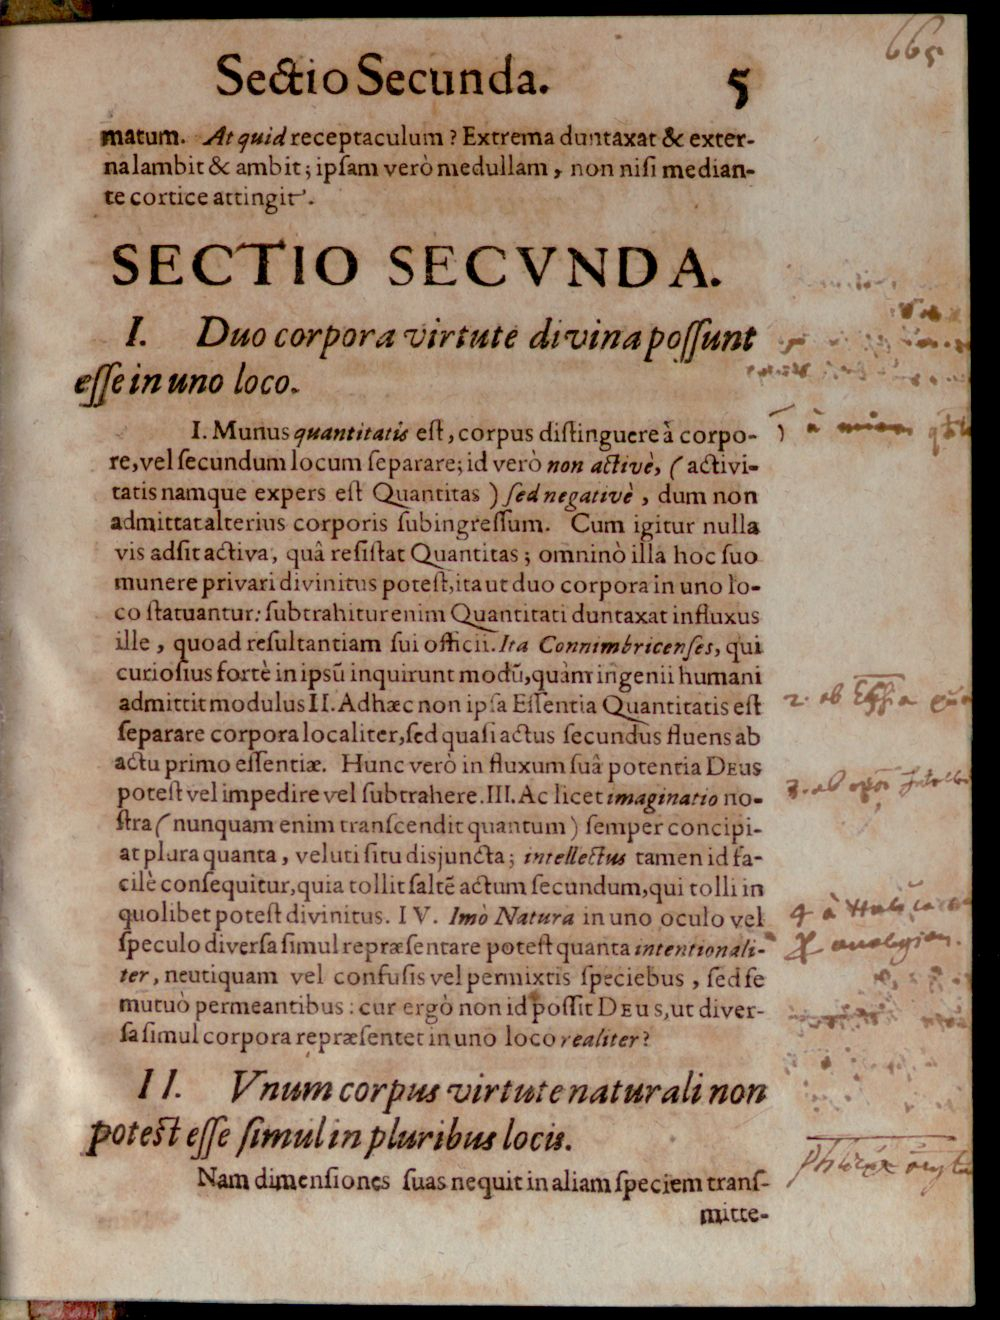 665
Sectio Secunda. 5
matum. At quid receptaculum? Extrema duntaxat & exter-
na lambit & ambit; ipsam verò medullam, non nisi median-
te cortice attingit.
SECTIO SECVNDA.
I. Duo corpora virtute divina possunt
esse in uno loco.
I. Munus quantitatis est, corpus distinguere à corpo-
re, vel secundum locum separare; id verò non activè, (activi-
tatis namque expers est Quantitas) sed negativè, dum non
admittat alterius corporis subingressum. Cum igitur nulla
vis adsit activa, quâ resistat Quantitas; omninò illa hoc suo
munere privari divinitus potest, ita ut duo corpora in uno lo-
co statuantur: subtrahitur enim Quantitati duntaxat influxus
ille, quoad resultantiam sui officii. Ita Connimbricenses, qui
curiosius fortè in ipsũ inquirunt modũ, quàm ingenii humani
admittit modulus II. Adhæc non ipsa Essentia Quantitatis est
separare corpora localiter, sed quasi actus secundus fluens ab
actu primo essentiæ. Hunc verò in fluxum suâ potentia DEUS
potest vel impedire vel subtrahere. III. Ac licet imaginatio no-
stra (nunquam enim transcendit quantum) semper concipi-
at plura quanta, veluti situ disjuncta; intellectus tamen id fa-
cilè consequitur, quia tollit saltẽ actum secundum, qui tolli in
quolibet potest divinitus. IV. Imò Natura in uno oculo vel
speculo diversa simul repræsentare potest quanta intentionali-
ter, neutiquam vel confusis vel permixtis speciebus, sed se
mutuò permeantibus: cur ergò non id possit DEUS, ut diver-
sa simul corpora repræsentet in uno loco realiter?
II. Vnum corpus virtute naturali non
potest esse simul in pluribus locis.
Nam dimensiones suas nequit in aliam speciem trans-
mitte-